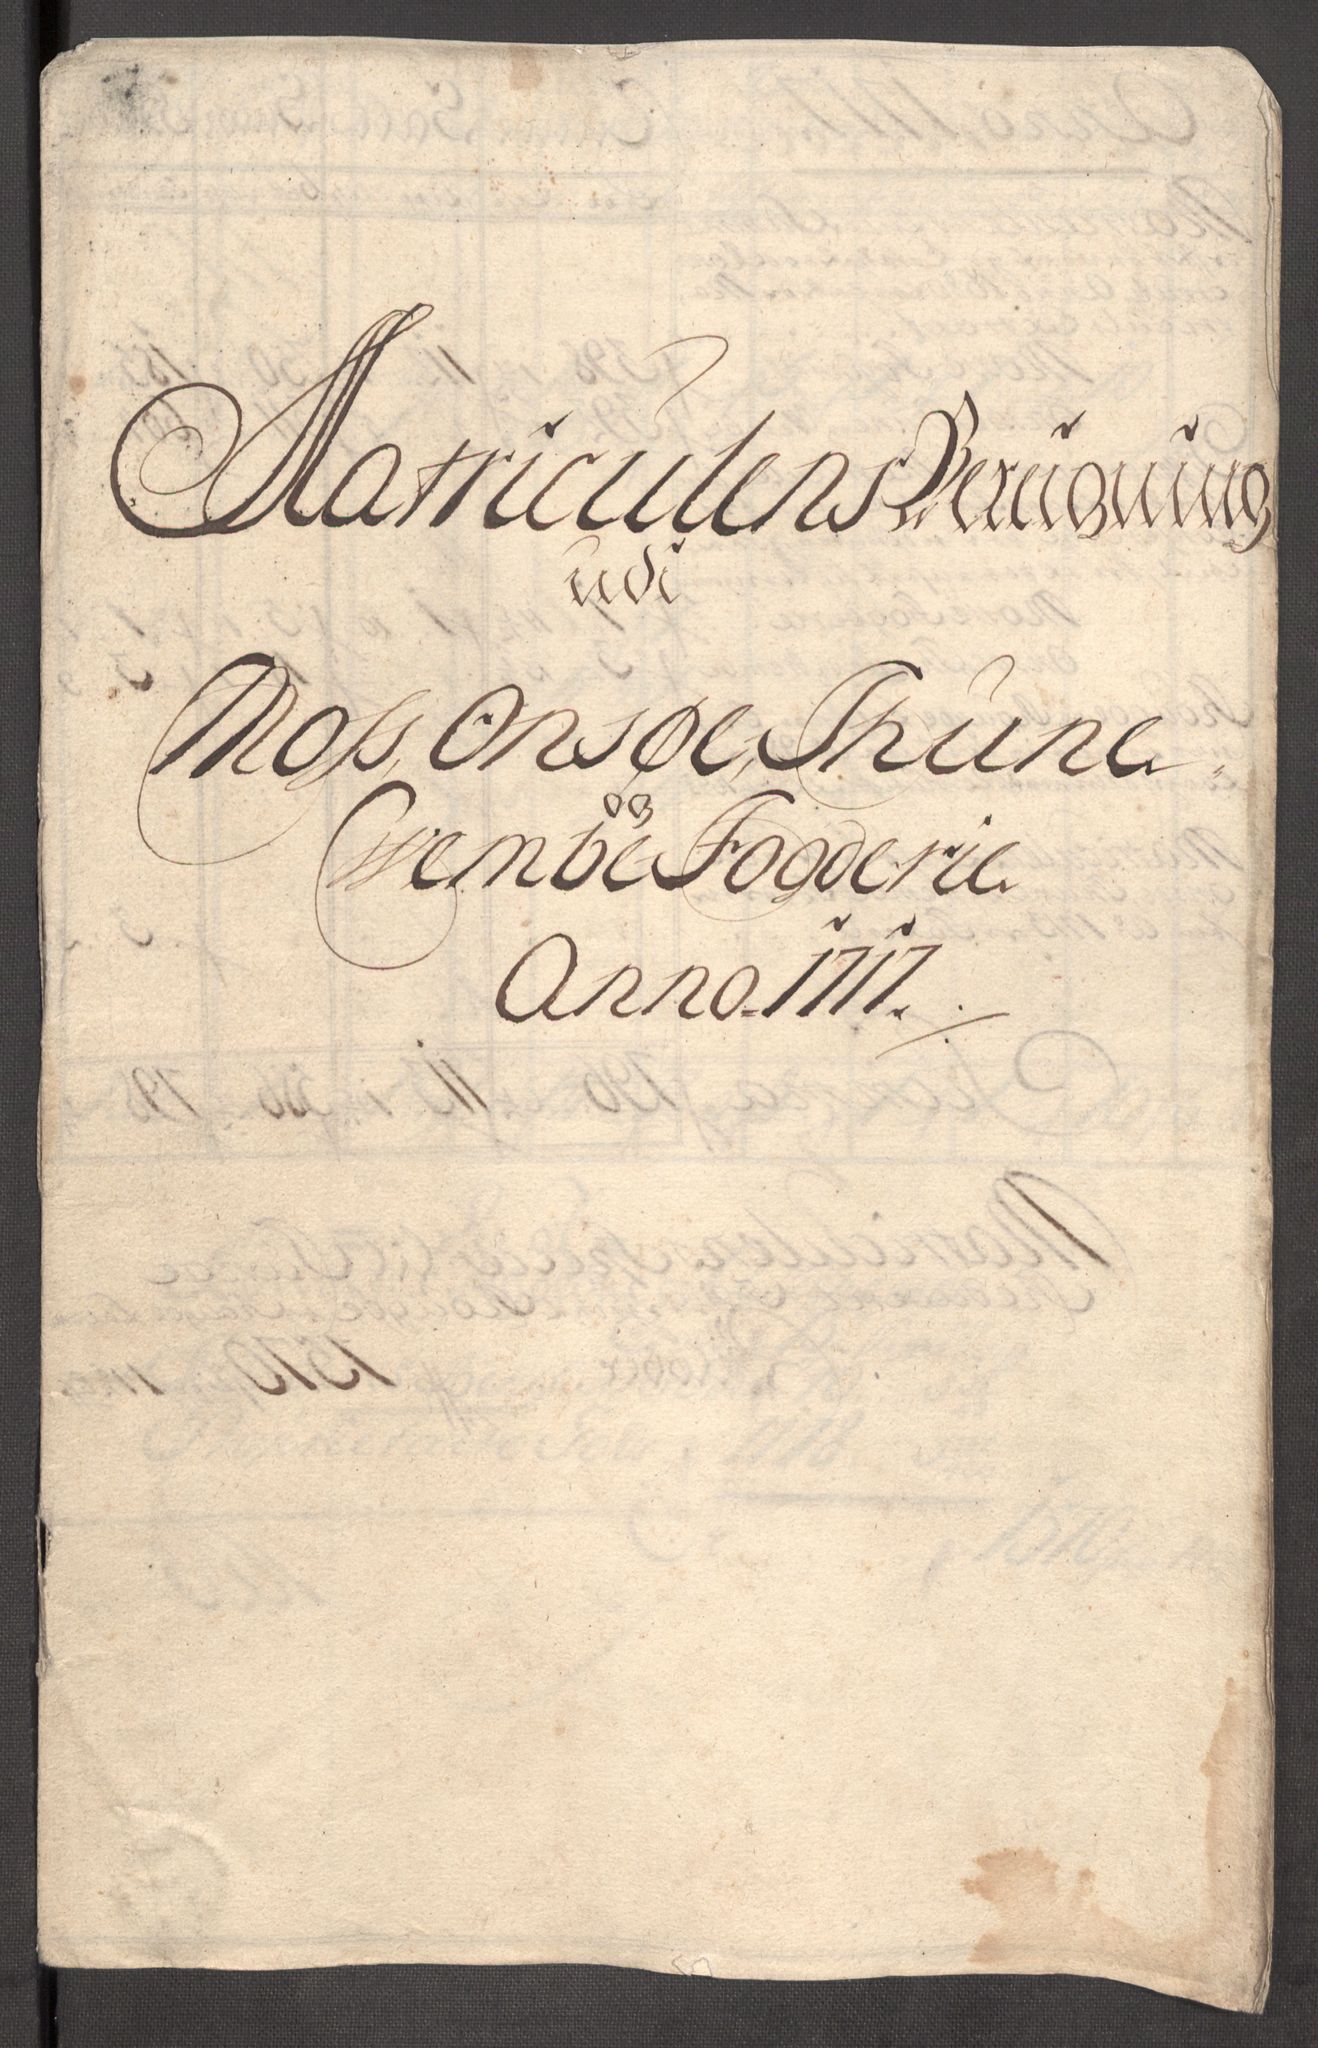 Matriculens Bereigning
udi
Moss, Onsøe, Thune
og
Wembe Fogderie
Anno. 1717.